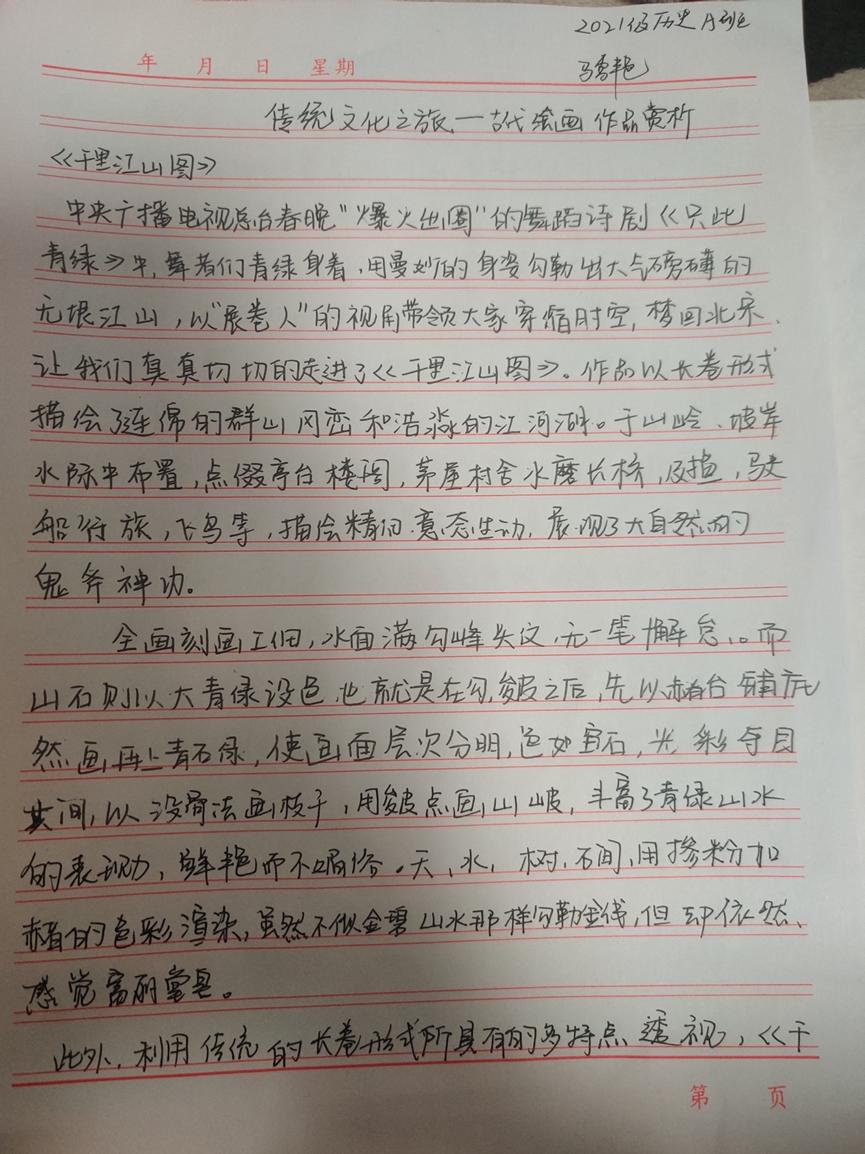 2021级历史A班
年 月 日 星期
马秀艳
传统文化之旅一古代绘画作品赏析
《千里江山图》
中央广播电视总台春晚"爆火出圈"的舞蹈诗剧《只此
青绿》中,舞者们青绿身着,用曼妙的身姿勾勒出大气磅礴的
无垠江山,以"展卷人"的视角带领大家穿缩时空,梦回北宋、
让我们真真切切的走进了《千里江山图》。作品以长卷形式
描绘了连绵的群山冈峦和浩淼的江河湖。于山岭、坡岸
水际中布置,点缀亭台楼阁,茅屋村舍水磨长桥,及捕,驶
船行旅,飞鸟等,描绘精细意态生动,展现了大自然的
鬼斧神功。
全画刻画工细,水面满勾峰头纹,无一笔懈怠、。而
山石则以大青绿设色也就是在勾,皴之后,先以赭石 铺底
然画再上青石绿,使画面层次分明,色如宝石,光彩夺目
其间,以没骨法画枝干,用皴点画山坡,丰富了青绿山水
的表现力,鲜艳而不媚俗。天、水、树、石间,用掺粉加
赭的色彩渲染,虽然不似金碧山水那样勾勒金线,但却依然、
感觉富丽堂皇。
此外,利用传统的长卷形式所具有的多特点透视,《千
第 页